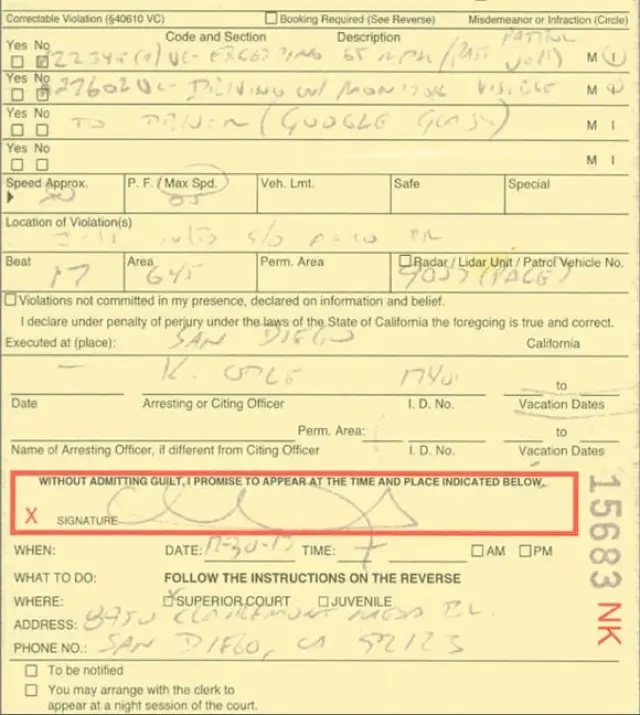 Correctable Violation (§40610 VC) Booking Required (See Reverse) Misdemeanor or Infraction (Circle)
Code and Section Description PATROL
Yes No 22349(a) VC- EXCEEDING 65 MPH M I
Yes No 27602 VC- DRIVING W/ MONITOR VISIBLE M I
Yes No TO DRIVER (GOOGLE GLASS) M I
Yes No M I
Speed Approx. P. F. / Max Spd. Veh. Lmt. Safe Special
65
Location of Violation(s)
Beat Area Perm. Area Radar / Lidar Unit / Patrol Vehicle No.
17 645 (PACE)
Violations not committed in my presence, declared on information and belief.
I declare under penalty of perjury under the laws of the State of California the foregoing is true and correct.
Executed at (place): SAN DIEGO California
K. to
Date Arresting or Citing Officer I. D. No. Vacation Dates
Perm. Area: to
Name of Arresting Officer, if different from Citing Officer I. D. No. Vacation Dates
WITHOUT ADMITTING GUILT, I PROMISE TO APPEAR AT THE TIME AND PLACE INDICATED BELOW.
X SIGNATURE
WHEN: DATE: TIME: AM PM
WHAT TO DO: FOLLOW THE INSTRUCTIONS ON THE REVERSE
WHERE: SUPERIOR COURT JUVENILE
ADDRESS: 8950 CLAIREMONT MESA BL.
PHONE NO.: SAN DIEGO, CA 92123
To be notified
You may arrange with the clerk to
appear at a night session of the court.
15683 NK